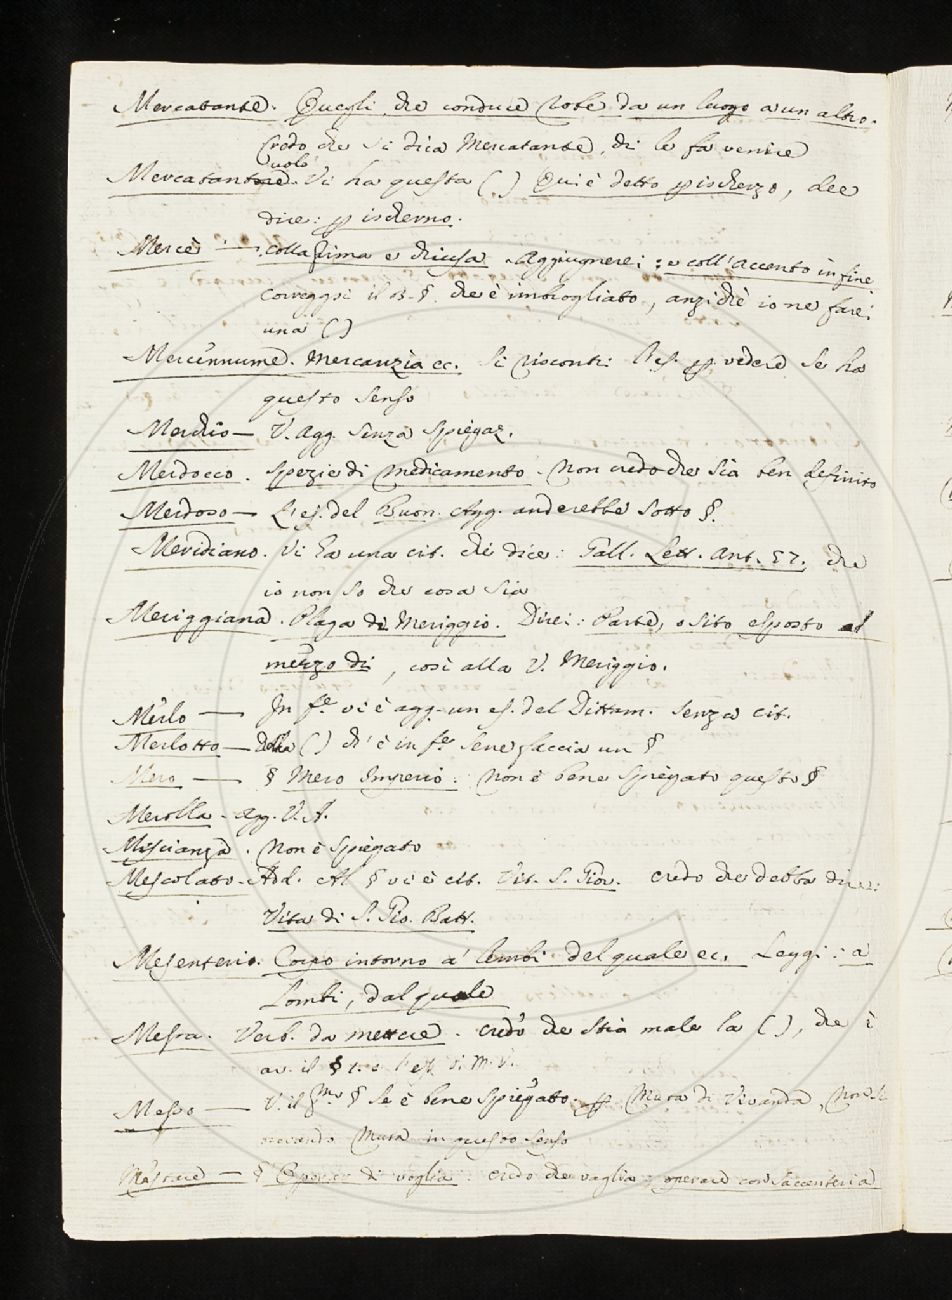 Mercatante. Quegli, che conduce robe da un luogo a un altro.
Credo che si dica Mercatante, chi le fa venire
Mercatantuolo. Vi ha questa ( ) Qui è detto p ischerzo, dee
dire: p ischerno.
Mercè — colla prima e chiusa. Aggiugnerei: e coll'accento in fine
Correggei il B. §. che è imbrogliato, anzichè io ne farei
una ( )
Mercennume. Mercanzia ec. Si riscontri l'es. p vedere se ha
questo senso
Merchio — V. Agg. senza spiegaz.
Merdocco. Spezie di medicamento. Non credo che sia ben definito
Merdoso — L'es. del Buon. Agg. anderebbe sotto §.
Meridiano. Vi ha una cit. che dice: Gall. Lett. Ant. 57. che
io non so che cosa sia
Meriggiana. Plaga di Meriggio. Direi: Parte, o sito esposto al
mezzo dì, così alla V. Meriggio.
Merlo — In fe vi è agg. un es. del Dittam. senza cit.
Merlotto — Della ( ) ch'è in fe se ne faccia un §
Mero — § Mero Imperio: Non è bene spiegato questo §
Merolla. Agg. V. A.
Miscianza. Non è spiegato
Mescolato. Add. Al § vi è cit. Vit. S. Giov. credo che debba dire:
Vita di S. Gio. Batt.
Mesenterio. Corpo intorno a' lembi del quale ec. Leggi: a
Lombi, dal quale
Messa. Verb. da mettere. credo che stia male la ( ), che è
av. il § 1. e l'es. V. M. V.
Messo — V. il pmo § se è bene spiegato, p Muta di vivanda, Non
trovando Muta in questo senso
Mestare — § di voglia: credo che voglia: operare con saccenteria